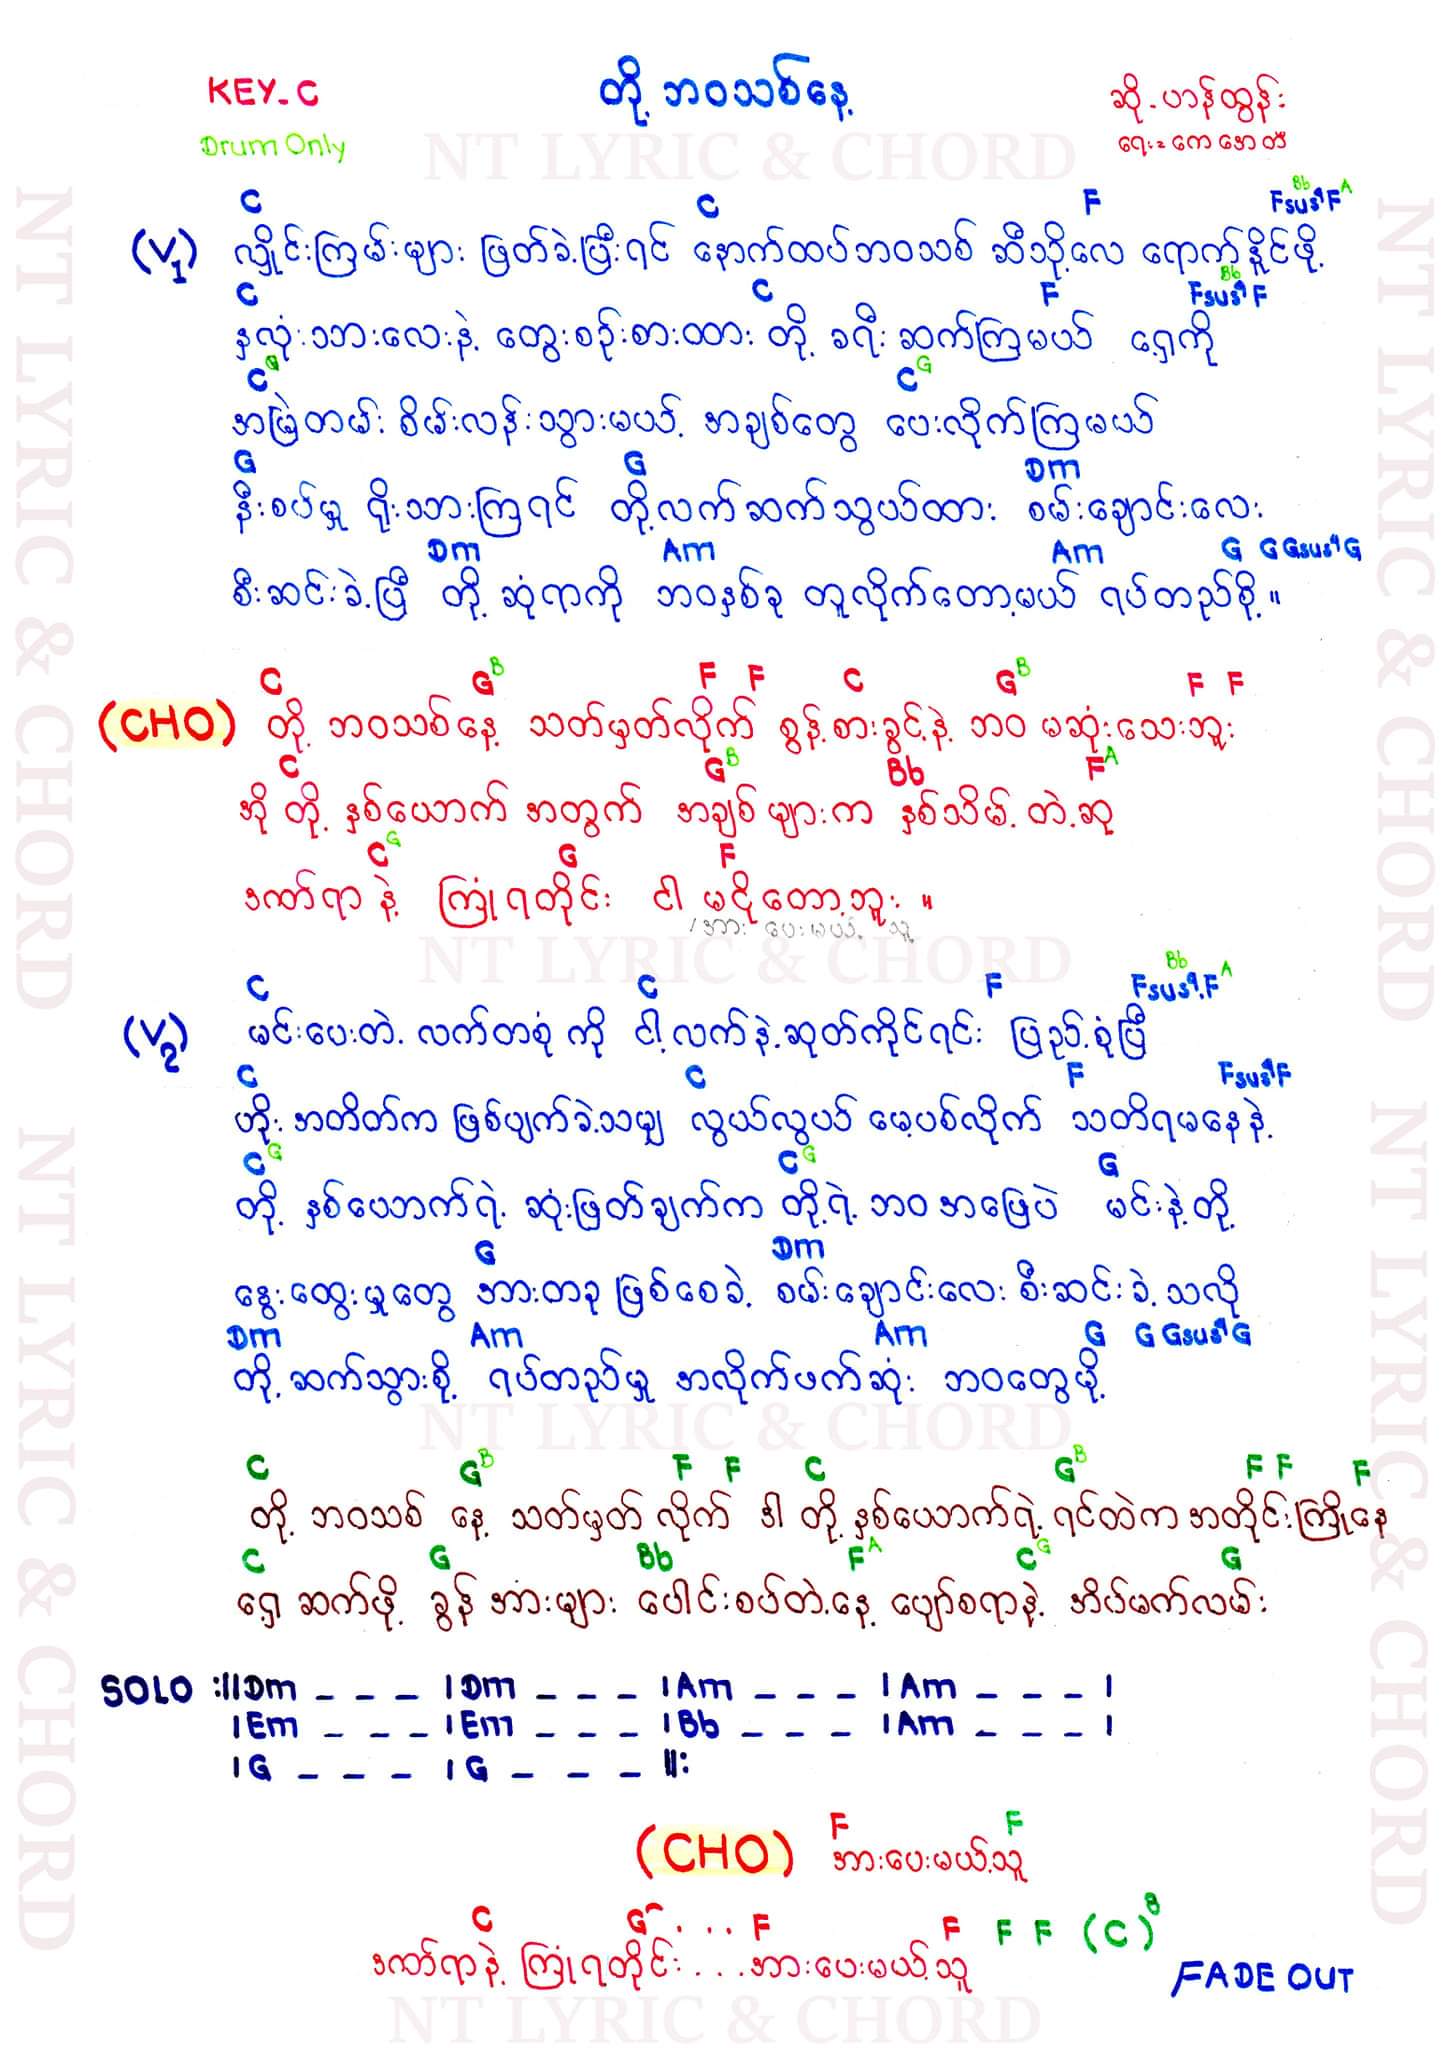 KEY-C
တို့ ဘဝသစ်နေ့
ဆို - ဟာန်ထွန်း
Drum Only
NT LYRIC & CHORD
ရေး = ကေအေတီ
C C F Fsus4 Bb F A
(V1) လှိုင်းကြမ်းများ ဖြတ်ခဲ့ပြီးရင် နောက်ထပ်ဘဝသစ် ဆီသို့လေ ရောက်နိူင်ဖို့
C C F Fsus4 Bb F
နှလုံးသားလေးနဲ့ တွေးစဉ်းစားထား တို့ ခရီးဆက်ကြမယ် ရှေ့ကို
C G C G
အမြဲတမ်း စိမ်းလန်းသွားမယ့် အချစ်တွေ ပေးလိုက်ကြမယ်
G G Dm
နီးစပ်မှု ရိုးသားကြရင် တို့လက်ဆက်သွယ်ထား စမ်းချောင်းလေး
Dm Am Am G G Gsus4 G
စီးဆင်းခဲ့ပြီ တို့ ဆုံရာကို ဘဝနှစ်ခု တူလိုက်တော့မယ် ရပ်တည်စို့ ။
C G B F F C G B F F
(CHO) တို့ ဘဝသစ်နေ့ သတ်မှတ်လိုက် စွန့်စားခွင့်နဲ့ ဘဝ မဆုံးသေးဘူး
C G B Bb F A
အို တို့ နှစ်ယောက် အတွက် အချစ်များက နှစ်သိမ့်တဲ့ဆု
C G G F
ဒဏ်ရာနဲ့ ကြုံရတိုင်း ငါ မငိုတော့ဘူး ။
/အားပေးမယ့်သူ
NT LYRIC & CHORD
C C F Fsus4 Bb F A
(V2) မင်းပေးတဲ့ လက်တစုံကို ငါ့လက်နဲ့ဆုတ်ကိုင်ရင်း ပြည့်စုံပြီ
C C F Fsus4 F
ဟိုးအတိတ်က ဖြစ်ပျက်ခဲ့သမျှ လွယ်လွယ် မေ့ပစ်လိုက် သတိရမနေနဲ့
C G C G G
တို့ နှစ်ယောက်ရဲ့ ဆုံးဖြတ်ချက်က တို့ရဲ့ ဘဝအဖြေပဲ မင်းနဲ့တို့
G Dm
နွေးထွေးမှုတွေ အားတခု ဖြစ်စေခဲ့ စမ်းချောင်းလေး စီးဆင်းခဲ့သလို
Dm Am Am G G Gsus4 G
တို့ဆက်သွားစို့ ရပ်တည်မှု အလိုက်ဖက်ဆုံး ဘဝတွေဖို့
NT LYRIC & CHORD
C G B F F C G B F F F
တို့ ဘဝသစ် နေ့ သတ်မှတ်လိုက် ဒါ တို့နှစ်ယောက်ရဲ့ ရင်ထဲက အတိုင်းကြိုနေ
C G Bb F A C G G
ရှေ့ဆက်ဖို့ ခွန်အားများ ပေါင်းစပ်တဲ့နေ့ ပျော်စရာနဲ့ အိပ်မက်လမ်း
SOLO :||Dm _ _ _ |Dm _ _ _ |Am _ _ _ |Am _ _ _ |
|Em _ _ _ |Em _ _ _ |Bb _ _ _ |Am _ _ _ |
|G _ _ _ |G _ _ _ ||:
F F
(CHO) အားပေးမယ့်သူ
C G ... F F F F (C) B
ဒဏ်ရာနဲ့ ကြုံရတိုင်း ... အားပေးမယ့်သူ
FADE OUT
NT LYRIC & CHORD
NT LYRIC & CHORD
NT LYRIC & CHORD
NT LYRIC & CHORD
NT LYRIC & CHORD